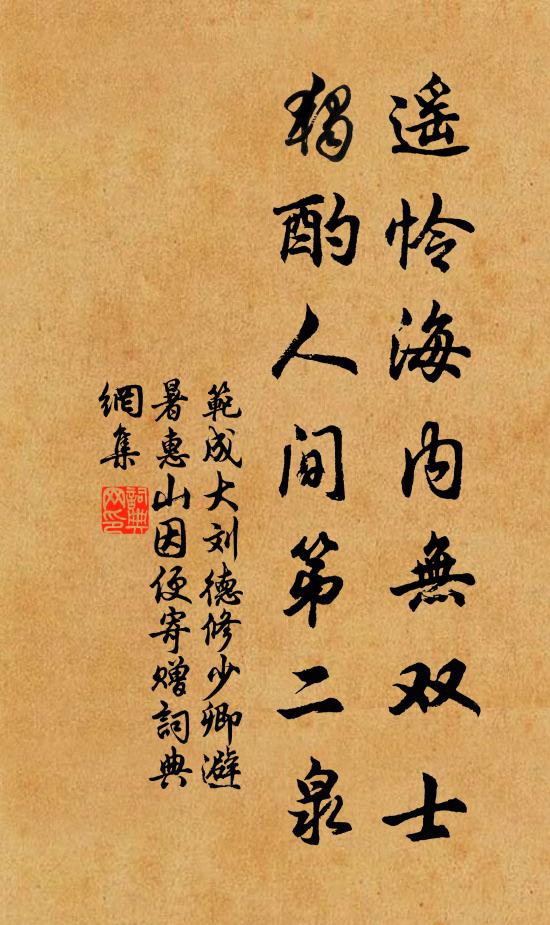 遥怜海内無双士
独酌人间第二泉
範成大刘德修少卿避
暑惠山因便寄赠詞典
網集
詞典
网印